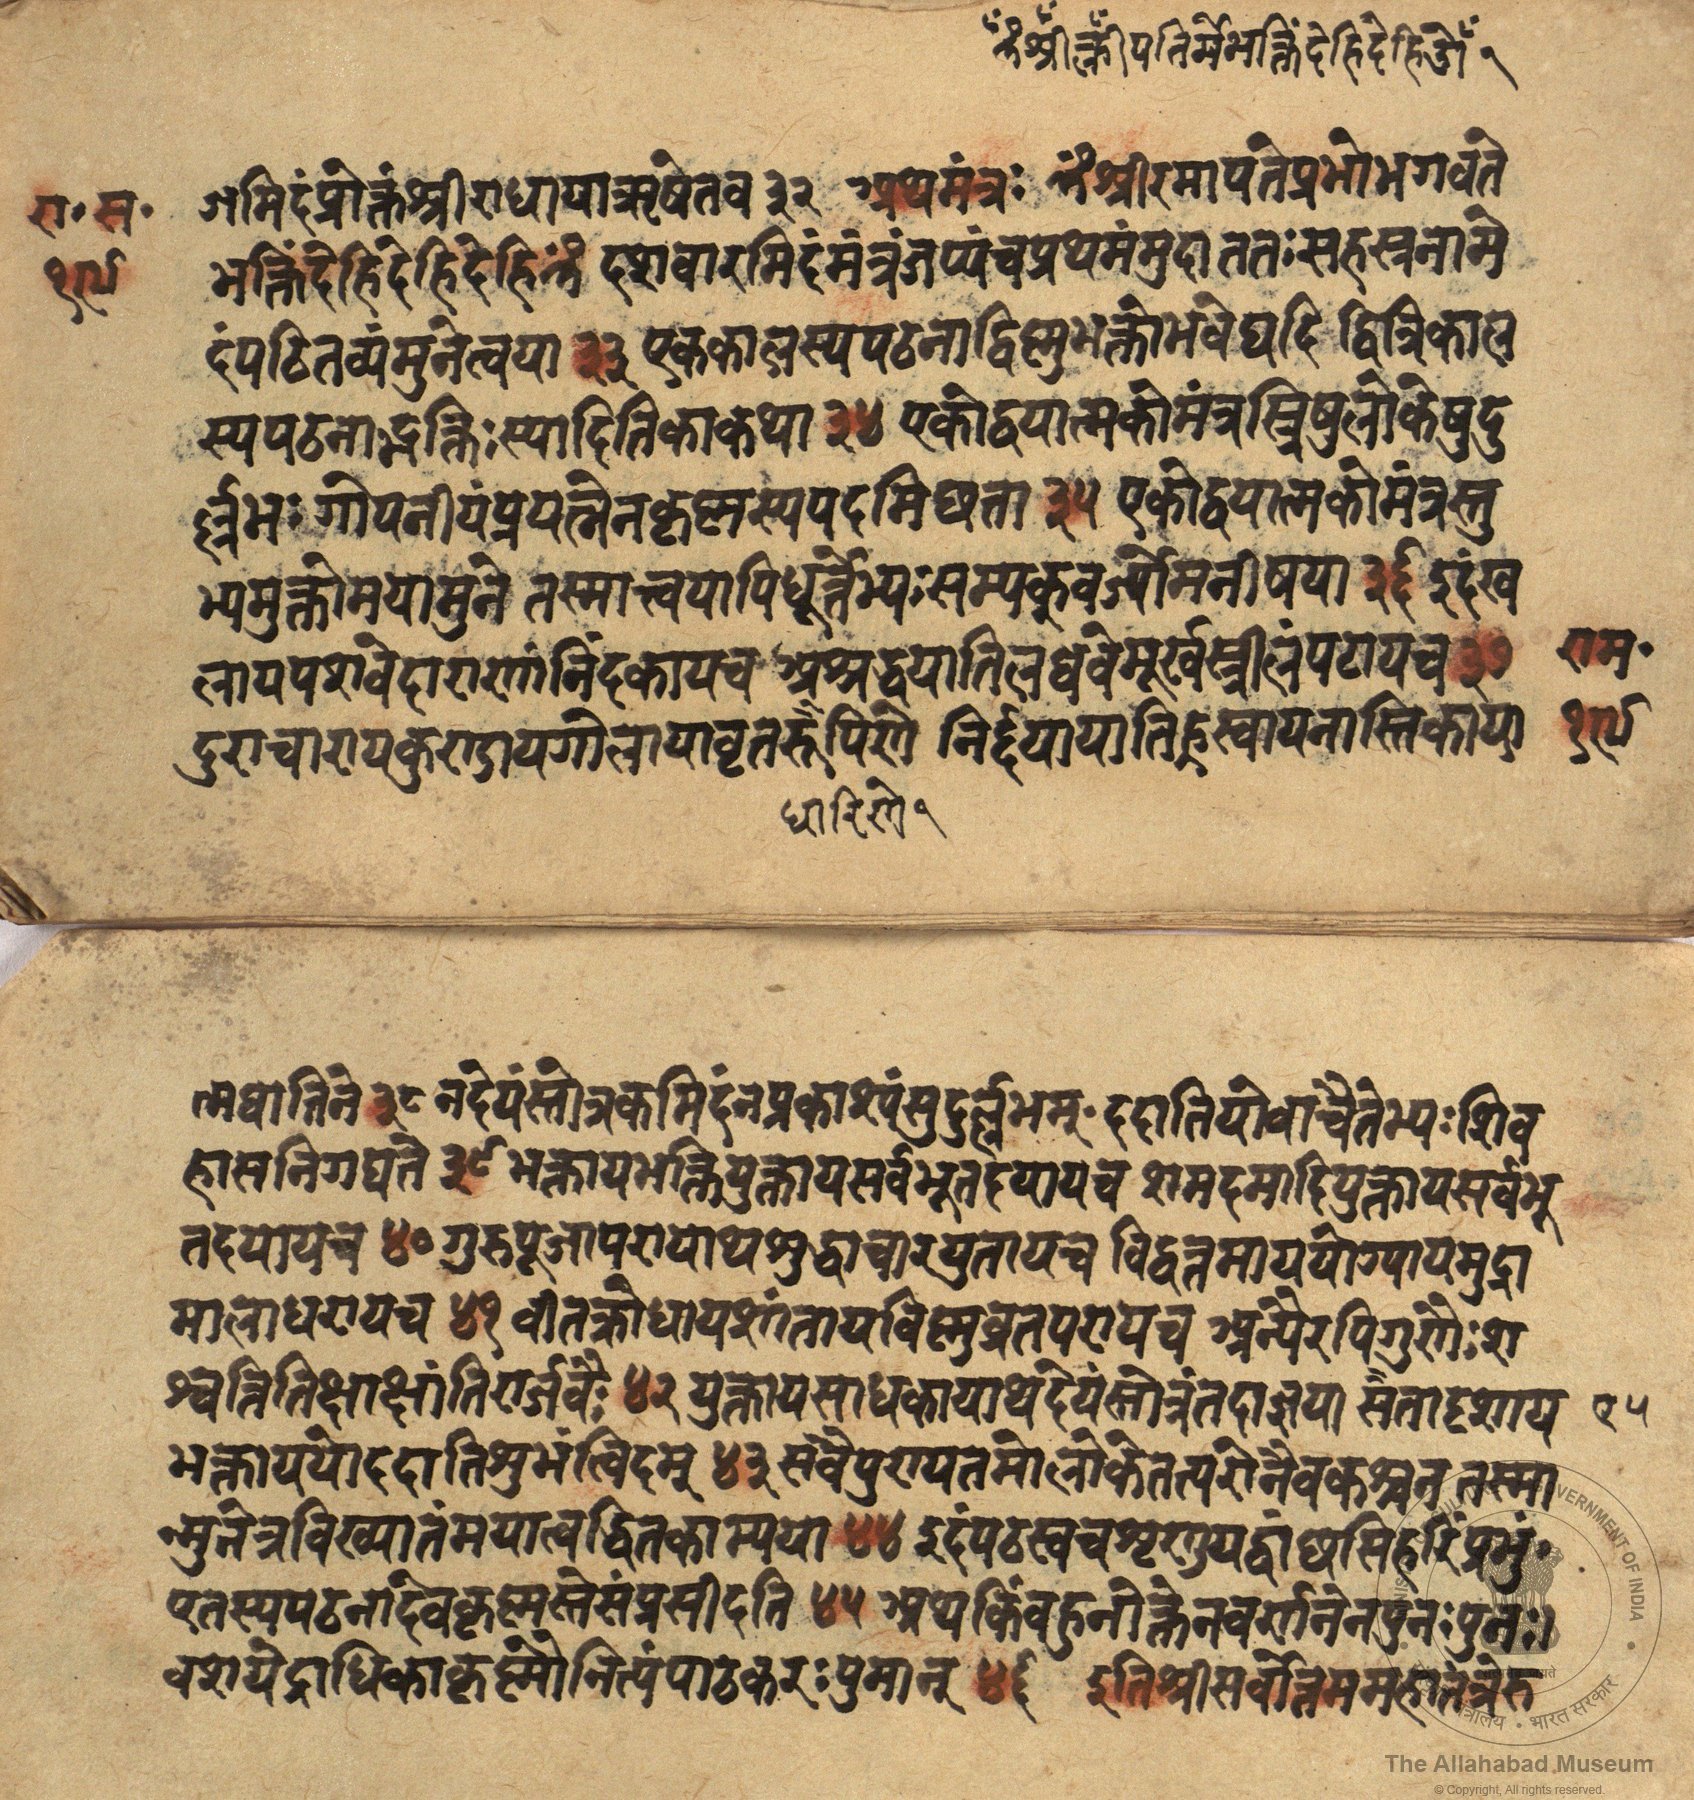 ॐश्रीह्रींपतिर्मेभक्तिंदेहिदेहिॐ १
शमिदंप्रोक्तंश्रीराधायाऋषेतव ३२ अथमंत्रः ॐश्रीरमापतेप्रभोभगवते
रा॰ स॰
भक्तिंदेहिदेहिदेहिॐ दशवारमिदंमंत्रंजप्यंचप्रथमंमुदा ततःसहस्त्रनामे
दंपठितव्यंमुनेत्वया ३३ एककालस्यपठनाद्विष्णुभक्तोभवेद्यदि द्वित्रिकाल
स्यपठनाद्भक्तिःस्यादितिकाकथा ३४ एकोद्वयात्मकोमंत्रस्त्रिषुलोकेषुदु
र्ल्लभः गोपनीयंप्रयत्नेनकृष्णस्यपदमिछता ३५ एकोद्वयात्मकोमंत्रस्तु
भ्यमुक्तोमयामुने तस्मात्त्वयापिधूर्त्तेभ्यःसम्यकुवर्ज्योमनीषया ३६ इदंख
लायपशवेदाराणांनिंदकायच अश्रद्धयातिलुब्धवेमूर्खस्त्रीलंपटायच ३७
राम॰
दुराचारायकुराद्रायगोलायावृतरूपिणे निर्द्दयायातिह्रस्वायनास्तिकाया
धारिणे १
त्मघातिने ३८ नदेयंस्तोत्रकमिदंनप्रकाश्यंसुदुर्ल्लभम् ददातियोवाचैतेभ्यःशिव
हासनिगद्यते ३९ भक्तायभक्तियुक्तायसर्वभूतदयायच शमदमादियुक्तायसर्वभू
तदयायच ४० गुरुपूजापरायाथशुद्धाचारयुतायच विद्वत्तमाययोग्यायमुद्रा
मालाधरायच ४१ वीतक्रोधायशांतायविष्णुव्रतपरायच अन्यैरपिगुणैःश
श्वत्तितिक्षाक्षांतिरार्जवैः ४२ युक्तायसाधकायाथदेयंस्तोत्रंतदाज्ञया सैतादृशाय
९५
भक्ताययोददातिशुभंत्विदम् ४३ संवैपुण्यतमोलोकेतत्परोनैवकश्चन तस्मा
न्मुनेत्रविख्यातंमयात्वद्धितकाम्यया ४४ इदंपठस्वचशृणुयद्वांछसिहरिंप्रभुं
एतस्यपठनादेवकृष्णस्तेसंप्रसीदति ४५ अथकिंवहुनोक्तेनवर्णनेनपुनःपुनः।
वशयेद्राधिकाकृष्णौनित्यंपाठकरःपुमान् ४६ इतिश्रीसर्वोत्तममहातंत्रेह
The Allahabad Museum
© Copyright, All rights reserved.